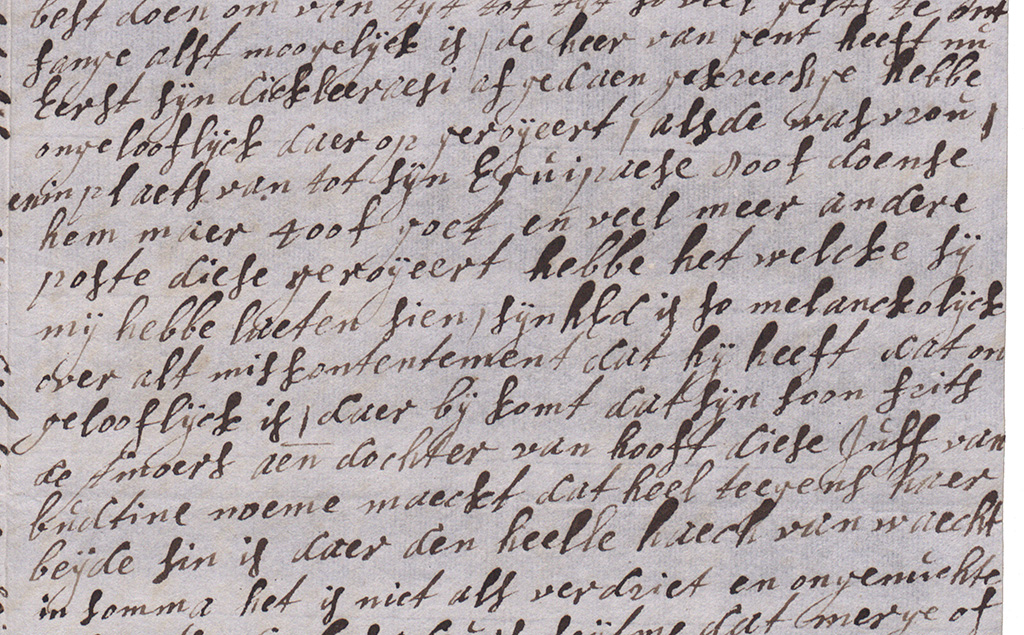 best doen om van tyt tot tyt so veel gelts te ont
fange alst moogelyck is / de heer van gent heeft nu
eerst syn dickleeraesi af gedaen gekreechge hebbe
ongelooflyck daer op geroyeert / als de was vrou /
en in plaets van tot syn Equipaese 800f doense
hem maer 400f goet en veel meer andere
poste diese geroyeert hebbe het welcke sy
my hebbe laeten sien / syn hEd is so melanckolyck
over alt miskontentement dat hy heeft dat on
gelooflyck is / daer by komt dat syn soon frits
de amoers aen dochter van hooft diese Juff van
budtine noeme maeckt dat heel teegens haer
beyde sin is daer den heelle haech van waecht
in somma het is niet als verdriet en ongenuchte
dat merge of